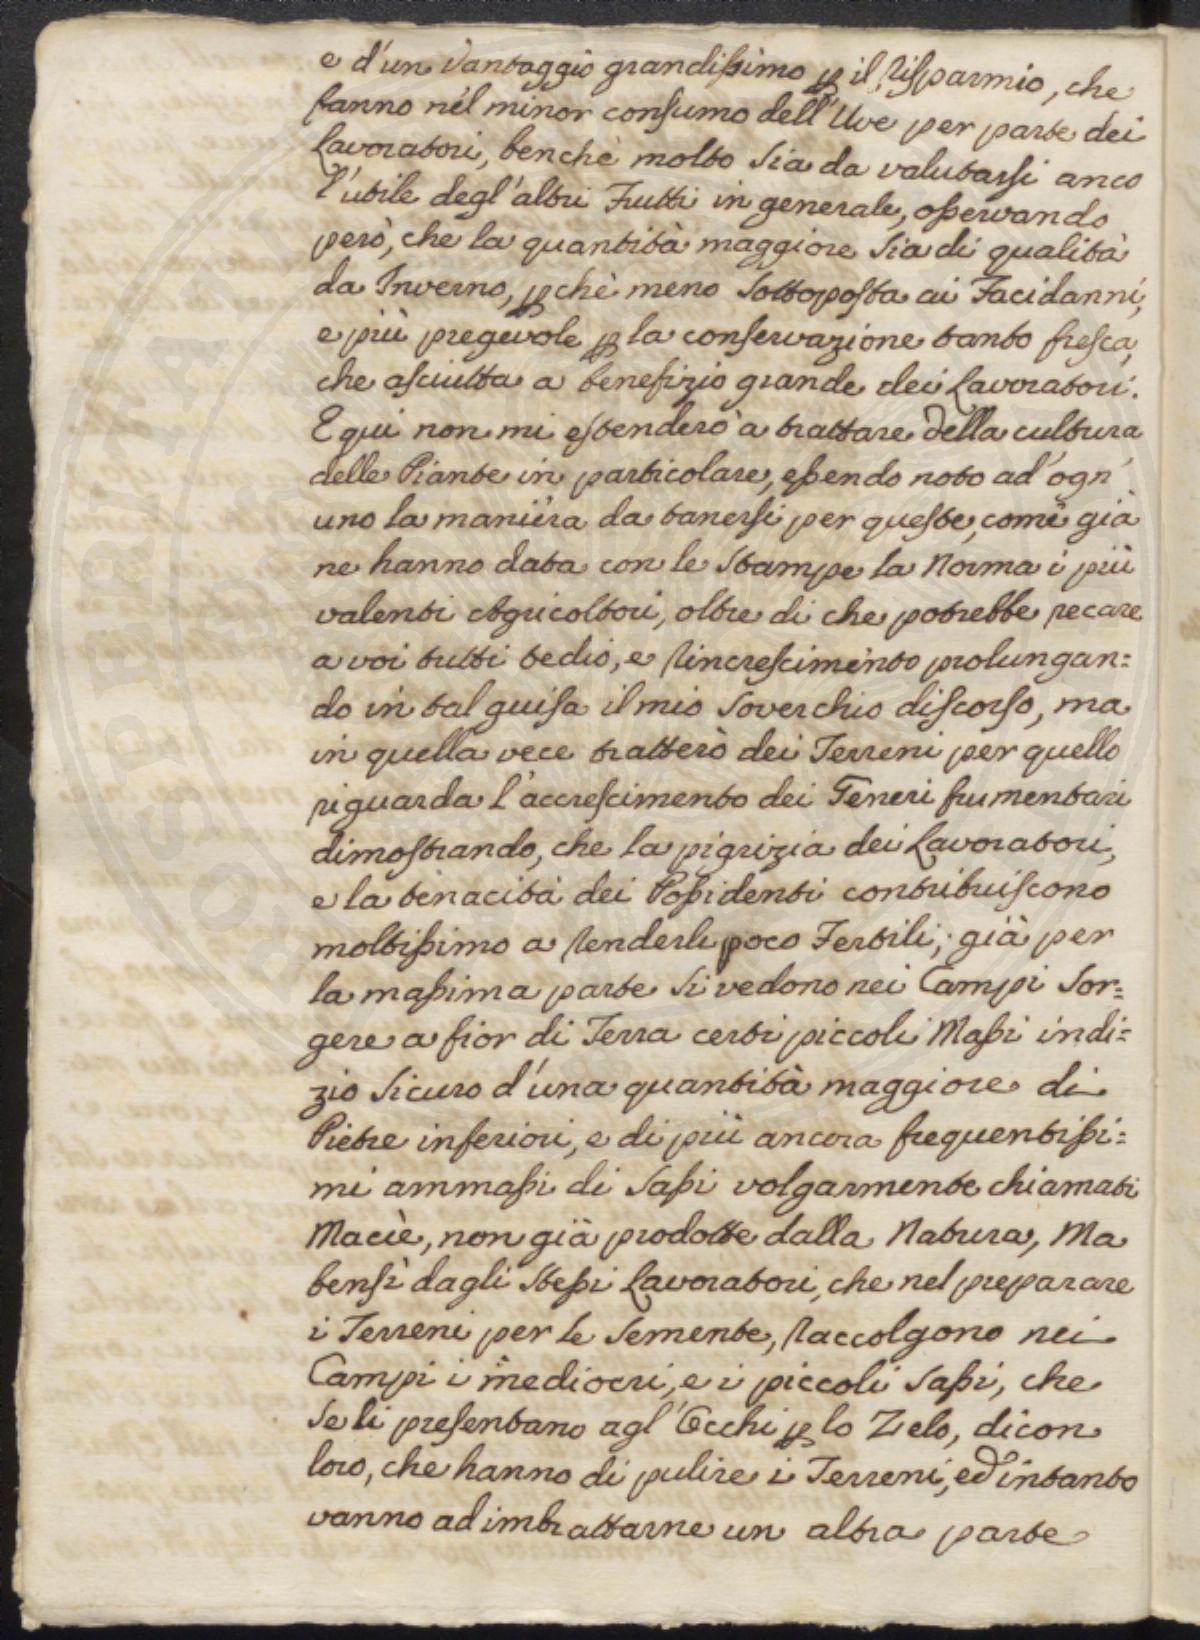 e d'un Vantaggio grandissimo p il Risparmio, che
fanno nel minor consumo dell'Uve per parte dei
Lavoratori, benchè molto sia da valutarsi anco
l'utile degl'altri Frutti in generale, osservando
però, che la quantità maggiore sia di qualità
da Inverno, pchè meno sottoposta ai Facidanni,
e più pregevole p la conservazione tanto fresca,
che asciutta a benefizio grande dei Lavoratori.
E qui non mi estenderò a trattare della cultura
delle Piante in particolare, essendo noto ad'ogn'
uno la maniera da tanersi per queste, come già
ne hanno data con le stampe la Norma i più
valenti Agricoltori, oltre di che potrebbe recare
a voi tutti tedio, e rincrescimento prolungan=
do in tal guisa il mio soverchio discorso, ma
in quella vece tratterò dei Terreni per quello
riguarda l'accrescimento dei Generi frumentari
dimostrando, che la pigrizia dei Lavoratori,
e la tenacità dei Possidenti contribuiscono
moltissimo a renderli poco Fertili; già per
la massima parte si vedono nei Campi sor=
gere a fior di Terra certi piccoli Massi indi=
zio sicuro d'una quantità maggiore di
Pietre inferiori, e di più ancora frequentissi=
mi ammassi di sassi volgarmente chiamati
Macìe, non già prodotte dalla Natura, Ma
bensì dagli stessi Lavoratori, che nel preparare
i Terreni per le semente, raccolgono nei
Campi i mediocri, e i piccoli sassi, che
se li presentano agl'Occhi p lo Zelo, dicon
loro, che hanno di pulire i Terreni, ed intanto
vanno ad imbrattarne un altra parte
SOSPIRITATI